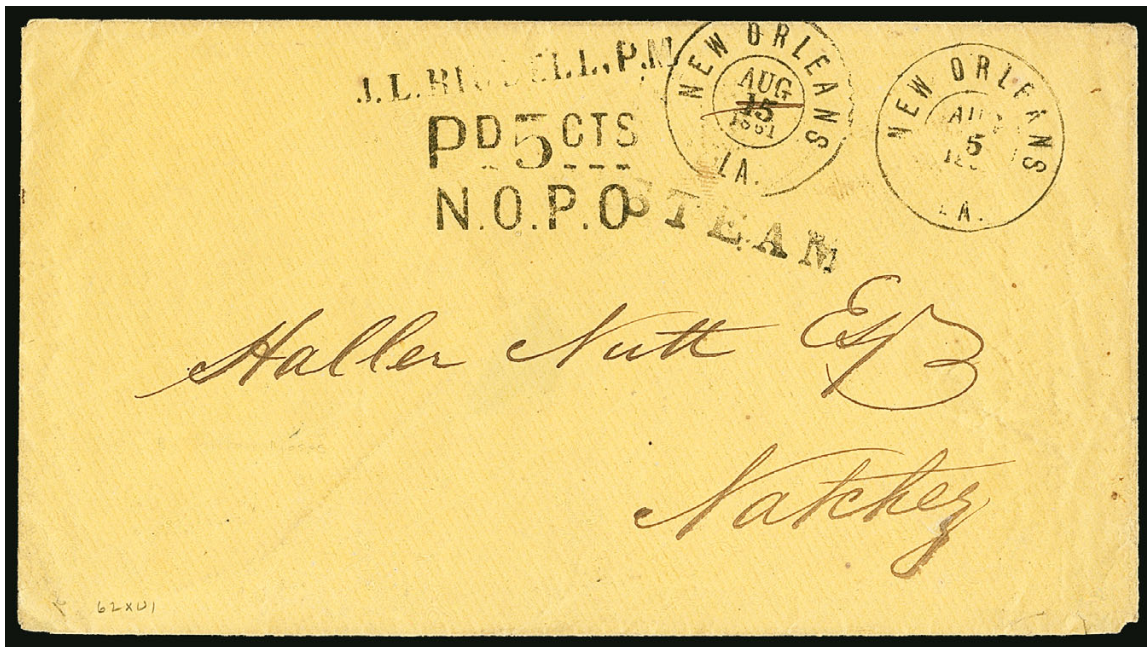 J. L. RIDDELL, P.M.
PD 5 CTS
N.O.P.O
NEW ORLEANS
AUG
15
1861
LA.
NEW ORLEANS
AUG
5
LA.
STEAM
Haller Nutt Esq
Natchez
62XU1